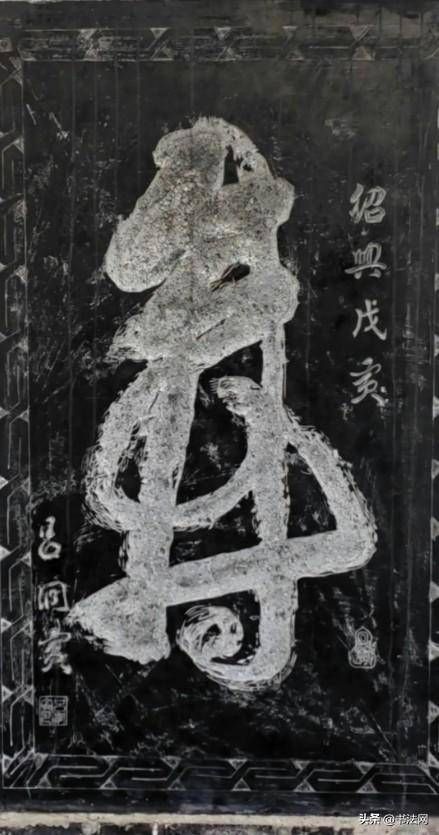 紹興戊寅
壽
呂洞賓
头条 @书法网